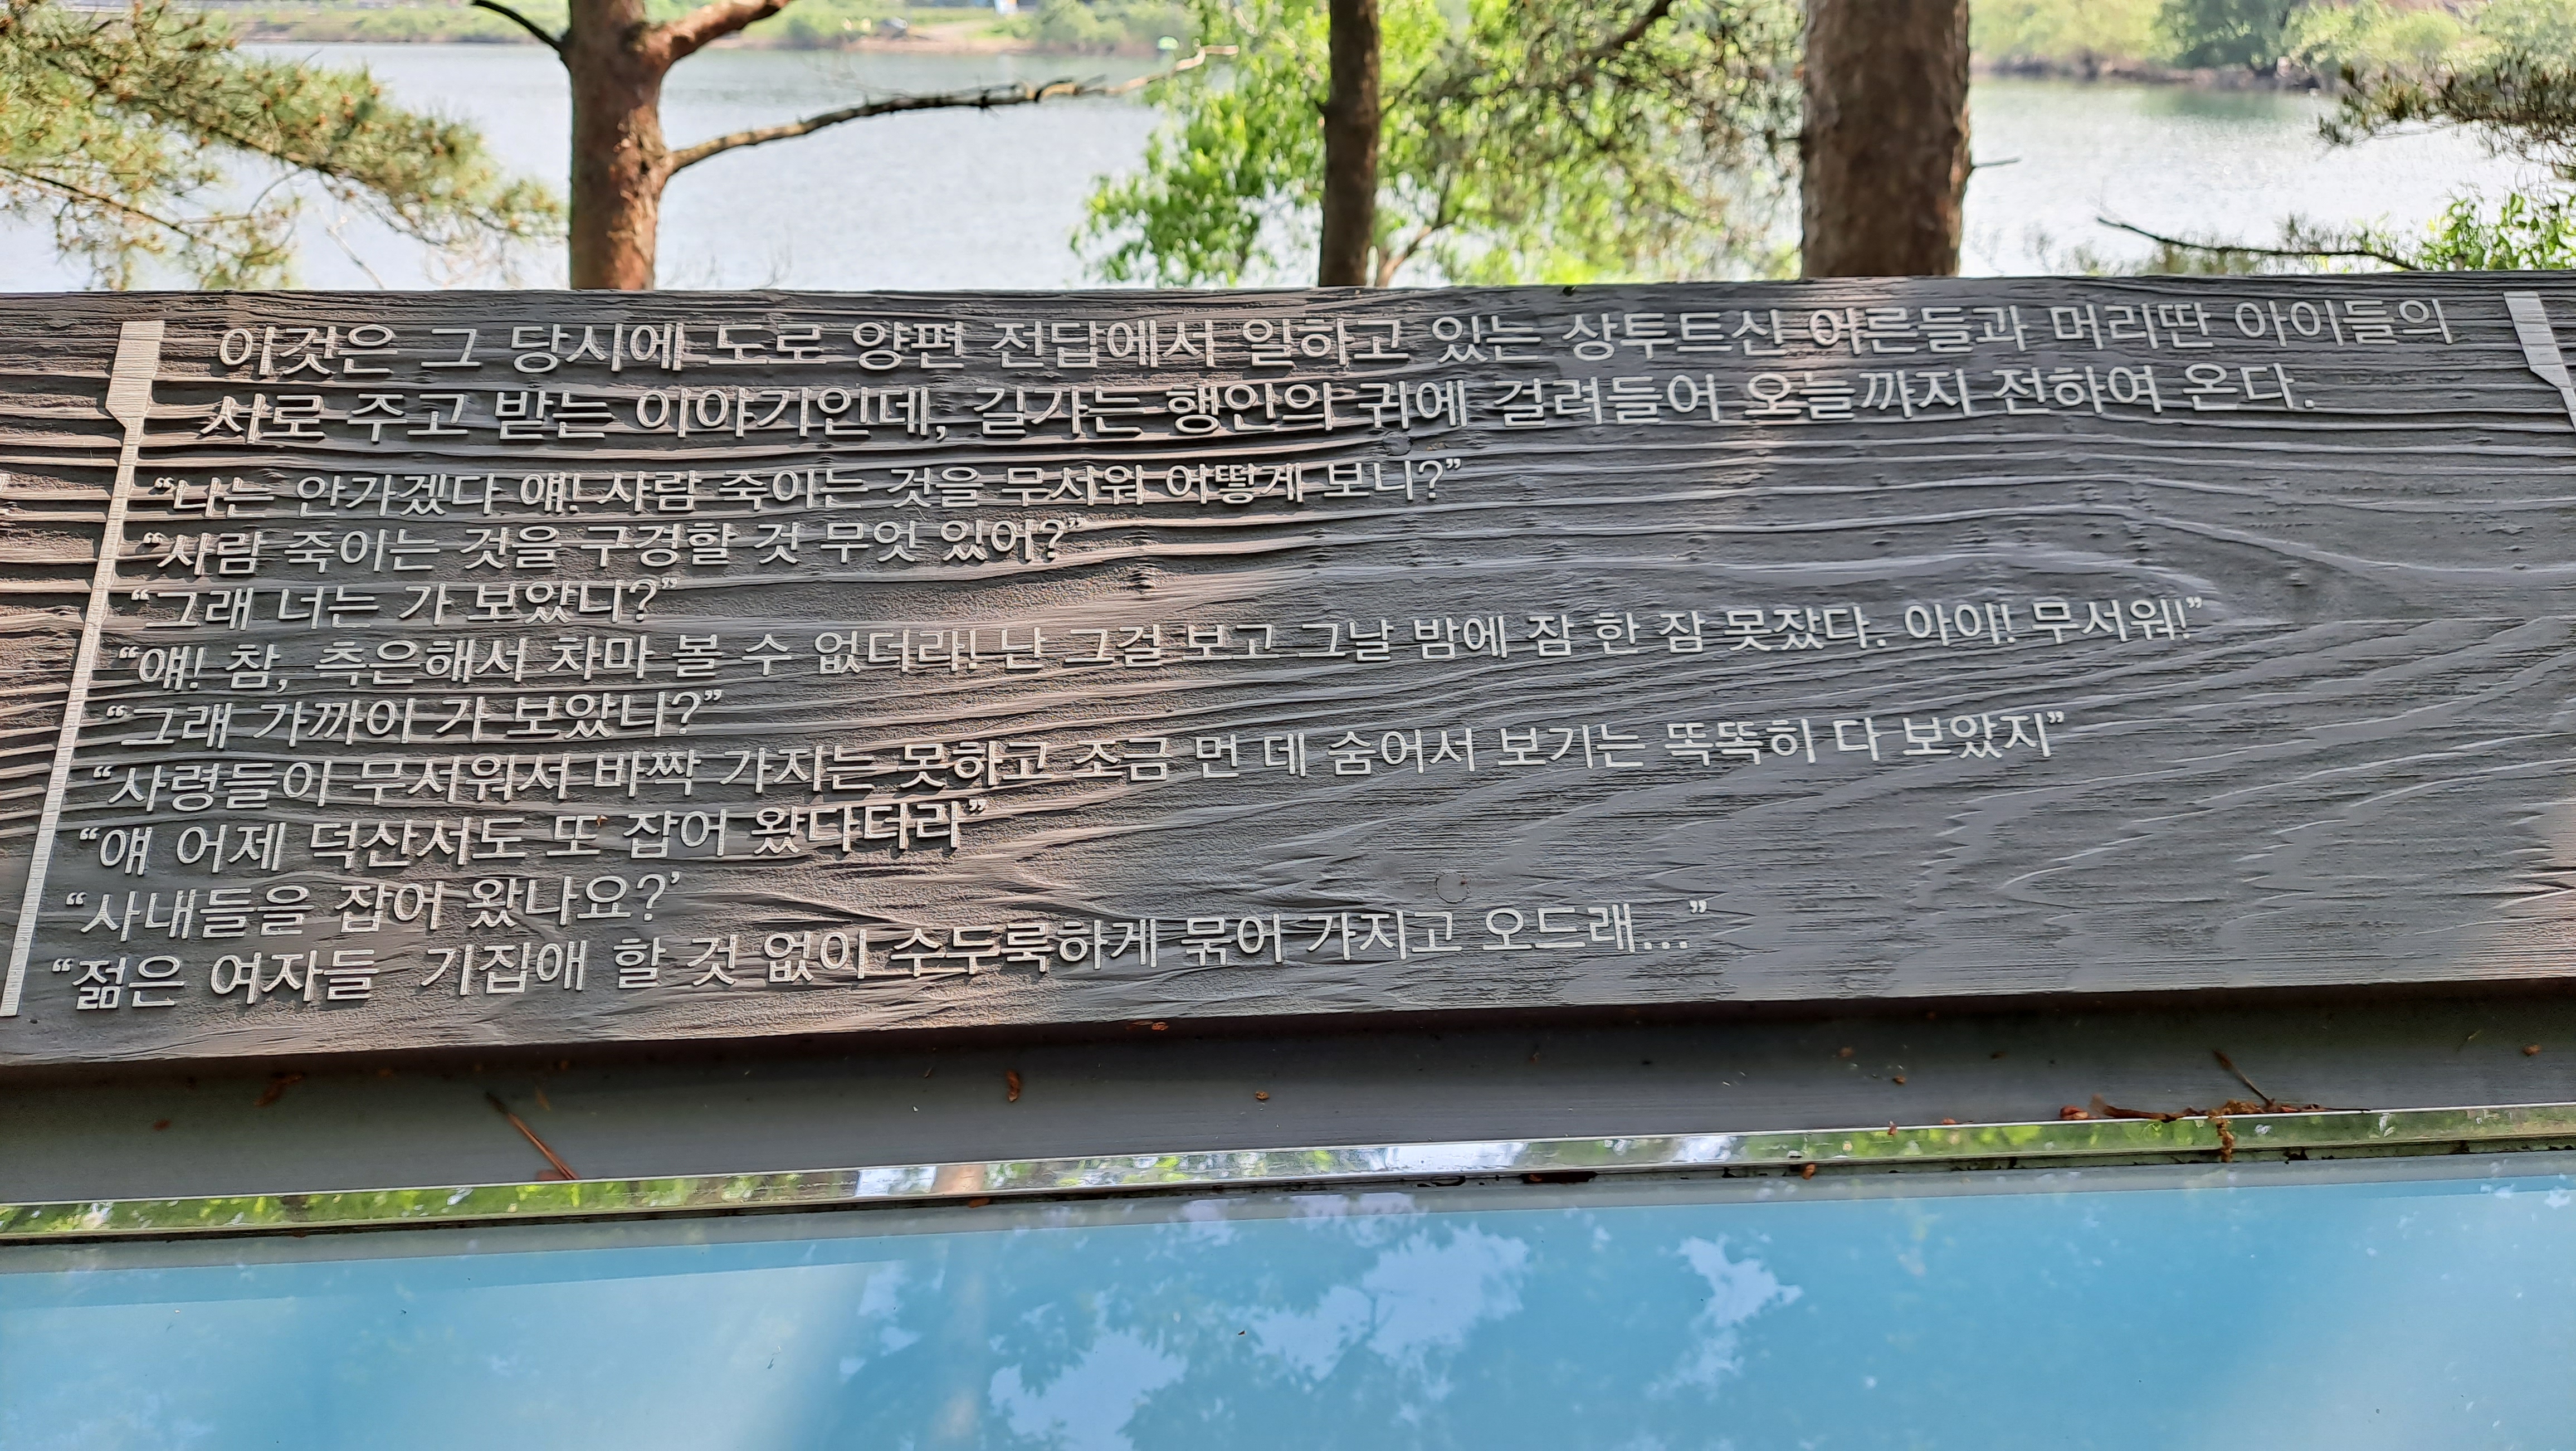 이것은 그 당시에 도로 양편 전답에서 일하고 있는 상투트신 어른들과 머리딴 아이들의
서로 주고 받는 이야기인데, 길가는 행인의 귀에 걸려들어 오늘까지 전하여 온다.
“나는 안가겠다 얘! 사람 죽이는 것을 무서워 어떻게 보니?”
“사람 죽이는 것을 구경할 것 무엇 있어?”
“그래 너는 가 보았니?”
“얘! 참, 측은해서 차마 볼 수 없더라! 난 그걸 보고 그날 밤에 잠 한 잠 못잤다. 아이! 무서워!”
“그래 가까이 가 보았니?”
“사령들이 무서워서 바짝 가지는 못하고 조금 먼 데 숨어서 보기는 똑똑히 다 보았지”
“얘 어제 덕산서도 또 잡어 왔다더라”
“사내들을 잡어 왔나요?’
“젊은 여자들 기집애 할 것 없이 수두룩하게 묶어 가지고 오드래...”